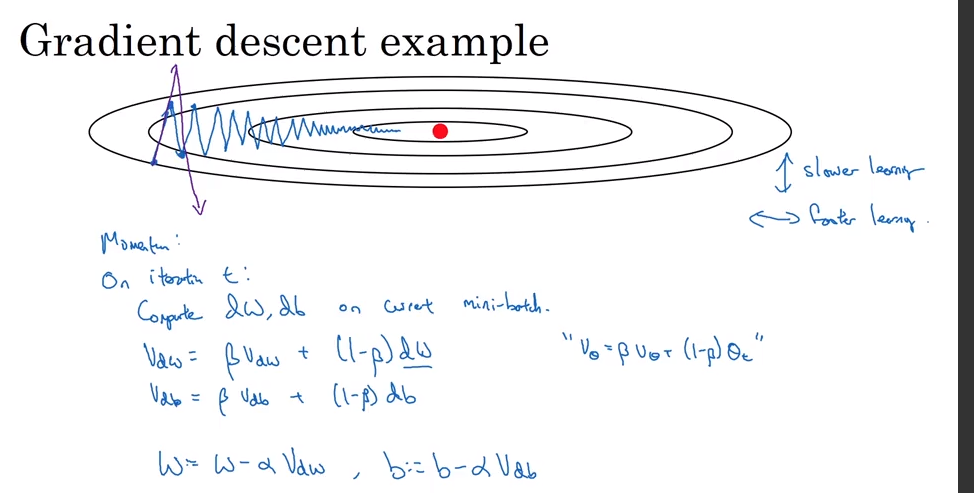 Gradient descent example
↕ slower learning
↔ faster learning.
Momentum:
On iteration t:
Compute dW, db on current mini-batch.
Vdw = βVdw + (1-β)dW
"Vθ = βVθ + (1-β)θt"
Vdb = βVdb + (1-β)db
W := W - αVdw , b := b - αVdb